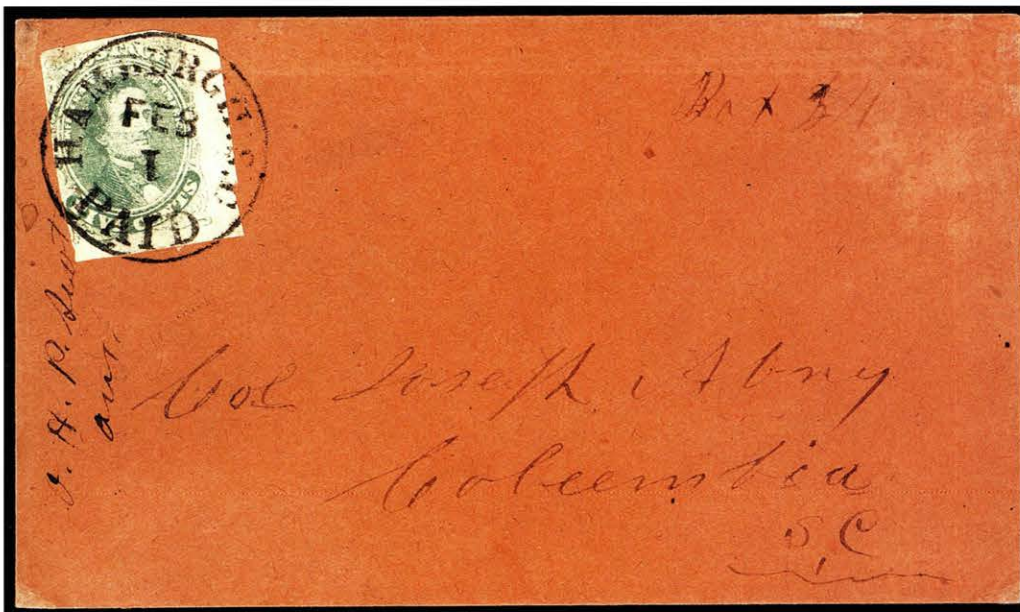 HAMBURG S.C.
FEB
1
PAID
Box 34
Col Joseph Abny
Coleembia
S,C
J. H. P.